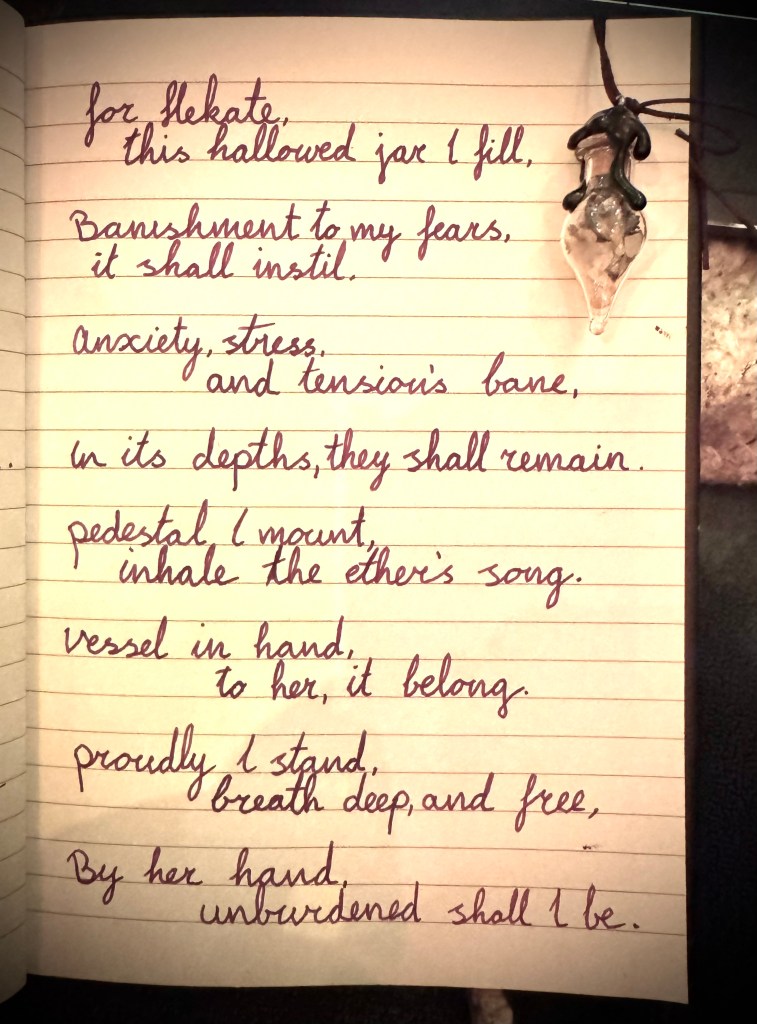 for Hekate,
this hallowed jar I fill,
Banishment to my fears,
it shall instil.
Anxiety, stress,
and tension's bane,
In its depths, they shall remain.
pedestal I mount,
inhale the ether's song.
vessel in hand,
to her, it belong.
proudly I stand,
breath deep, and free,
By her hand,
unburdened shall I be.